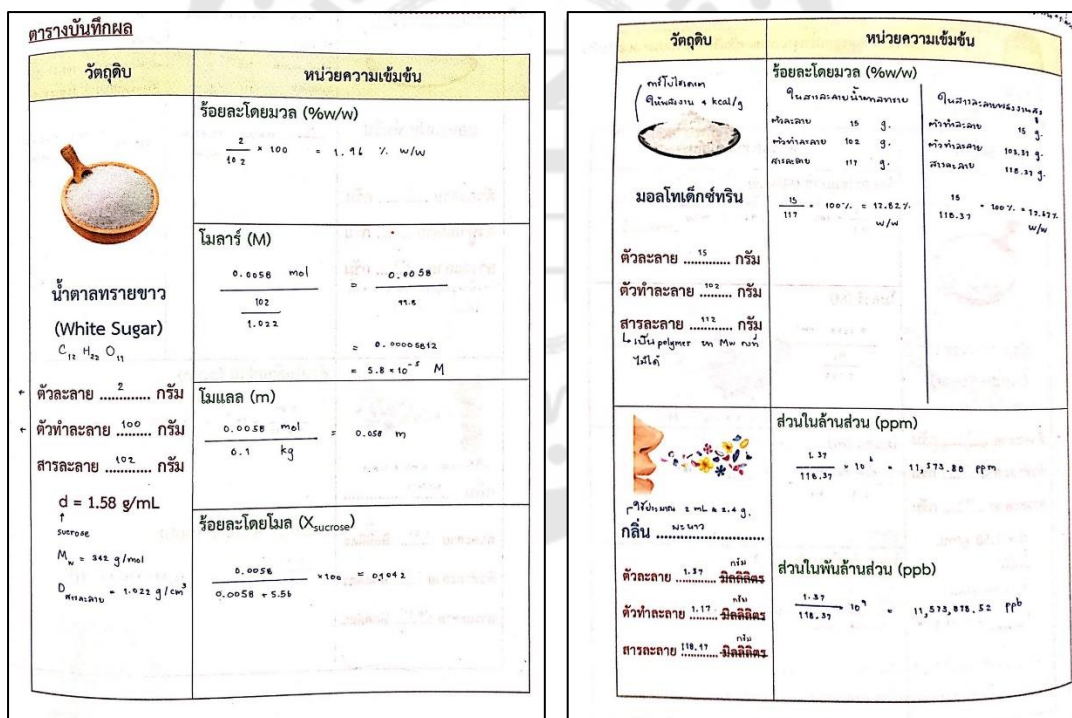 ตารางบันทึกผล
วัตถุดิบ
หน่วยความเข้มข้น
น้ำตาลทรายขาว
(White Sugar)
C12 H22 O11
ตัวละลาย ....2........ กรัม
ตัวทำละลาย ..100..... กรัม
สารละลาย ..102..... กรัม
d = 1.58 g/mL
↑
sucrose
Mw = 342 g/mol
Dสารละลาย = 1.022 g/cm3
ร้อยละโดยมวล (%w/w)
2/102 × 100 = 1.96 % w/w
โมลาร์ (M)
0.0058 mol
102
1.022
= 0.0058
99.8
= 0.00005812
= 5.8 × 10-5 M
โมแลล (m)
0.0058 mol
0.1 kg
= 0.058 m
ร้อยละโดยโมล (Xsucrose)
0.0058
0.0058 + 5.56
×100 = 0.1042
วัตถุดิบ
หน่วยความเข้มข้น
คาร์โบไฮเดรต
ให้พลังงาน 4 kcal/g
มอลโทเด็กซ์ทริน
ตัวละลาย ....15........ กรัม
ตัวทำละลาย ..102..... กรัม
สารละลาย ...112..... กรัม
เป็น polymer หา Mw คงที่
ไม่ได้
ร้อยละโดยมวล (%w/w)
ในสารละลายน้ำตาลทราย
ตัวละลาย 15 g.
ตัวทำละลาย 102 g.
สารละลาย 117 g.
15/117 × 100% = 12.82%
w/w
ในสารละลายพลังงานสูง
ตัวละลาย 15 g.
ตัวทำละลาย 103.37 g.
สารละลาย 118.37 g.
15/118.37 × 100% = 12.67%
w/w
ใช้ประมาณ 2 mL ≈ 2.4 g.
กลิ่น ....มะนาว....
ตัวละลาย ..1.37..... กรัม มิลลิลิตร
ตัวทำละลาย .1.17..... กรัม มิลลิลิตร
สารละลาย .118.17..... กรัม มิลลิลิตร
ส่วนในล้านส่วน (ppm)
1.37/118.37 × 106 = 11,573.88 ppm
ส่วนในพันล้านส่วน (ppb)
1.37/118.37 × 109 = 11,573,878.52 ppb